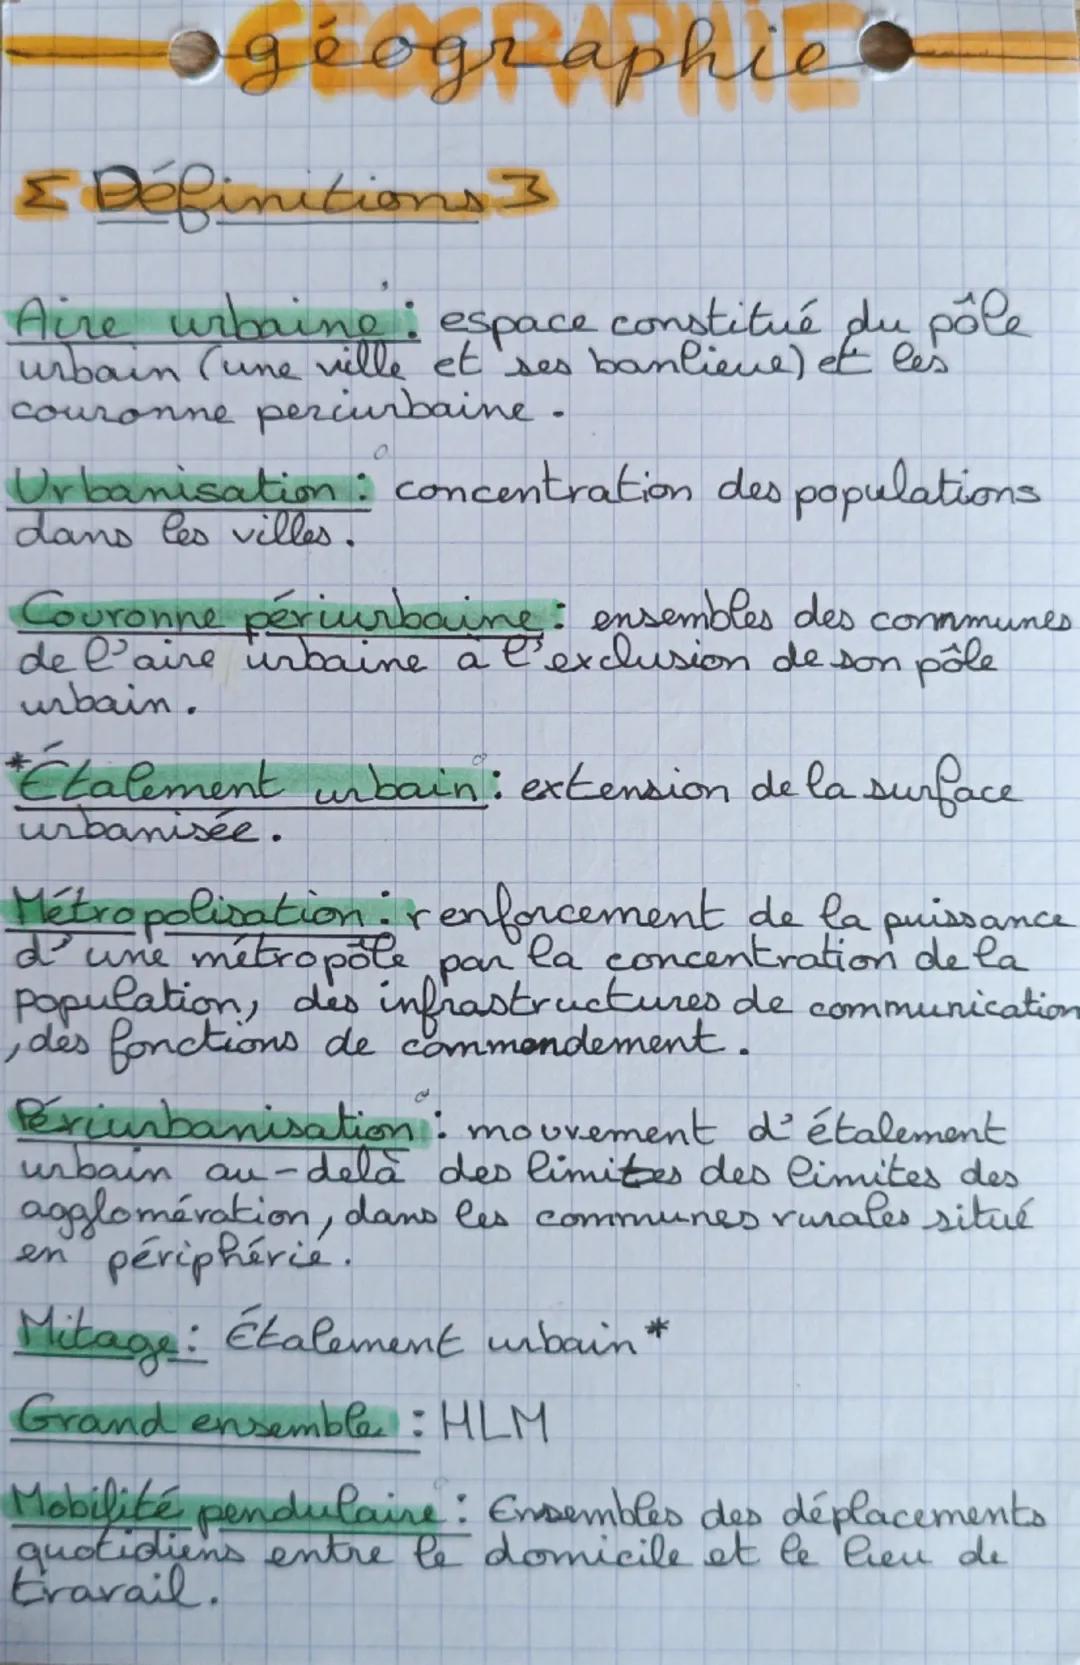 GÉOGRAPHIE
géographie
Définitions
Aire urbaine : espace constitué du pôle
urbain (une ville et ses banlieue) et les
couronne periurbaine.
Urbanisation : concentration des populations
dans les villes.
Couronne périurbaine : ensembles des communes
de l'aire urbaine a l'exclusion de son pôle
urbain.
*Étalement urbain : extension de la surface
urbanisée.
Métropolisation : renforcement de la puissance
d'une métropôle par la concentration de la
population, des infrastructures de communication
, des fonctions de commendement.
Périurbanisation : mouvement d'étalement
urbain au-delà des limites des limites des
agglomération, dans les communes rurales situé
en périphérie.
Mitage : Étalement urbain*
Grand ensemble : HLM
Mobilité pendulaire : Ensembles des déplacements
quotidiens entre le domicile et le lieu de
travail.